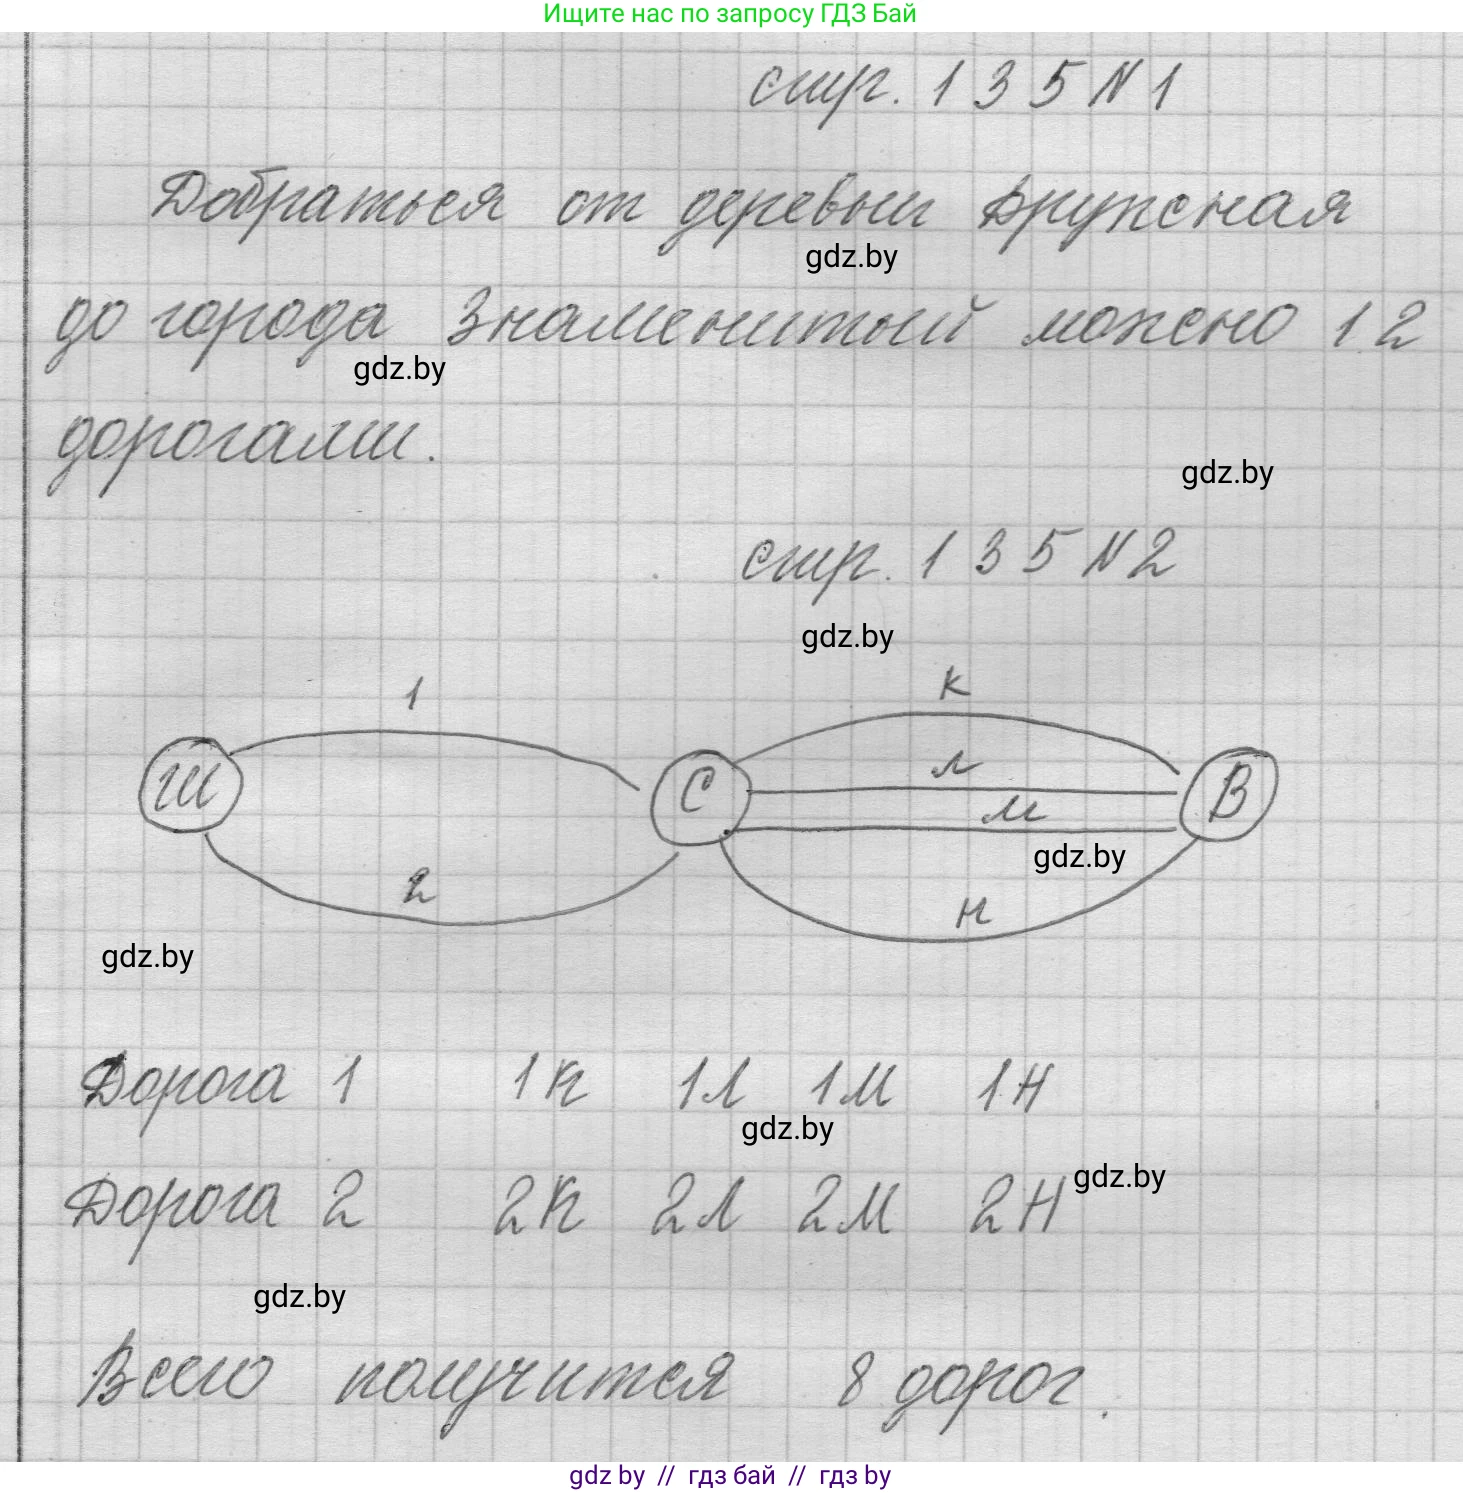 Ищите нас по запросу ГДЗ Бай
стр. 135 N 1
Добраться от деревни Дружная
gdz.by
до города Знаменитый можно 12
gdz.by
дорогами.
gdz.by
стр. 135 N 2
gdz.by
1 К
Ш С Л В
М
gdz.by
2 Н
gdz.by
Дорога 1 1К 1Л 1М 1Н
gdz.by
gdz.by
Дорога 2 2К 2Л 2М 2Н
gdz.by
Всего получится 8 дорог.
gdz by // гдз бай // гдз by